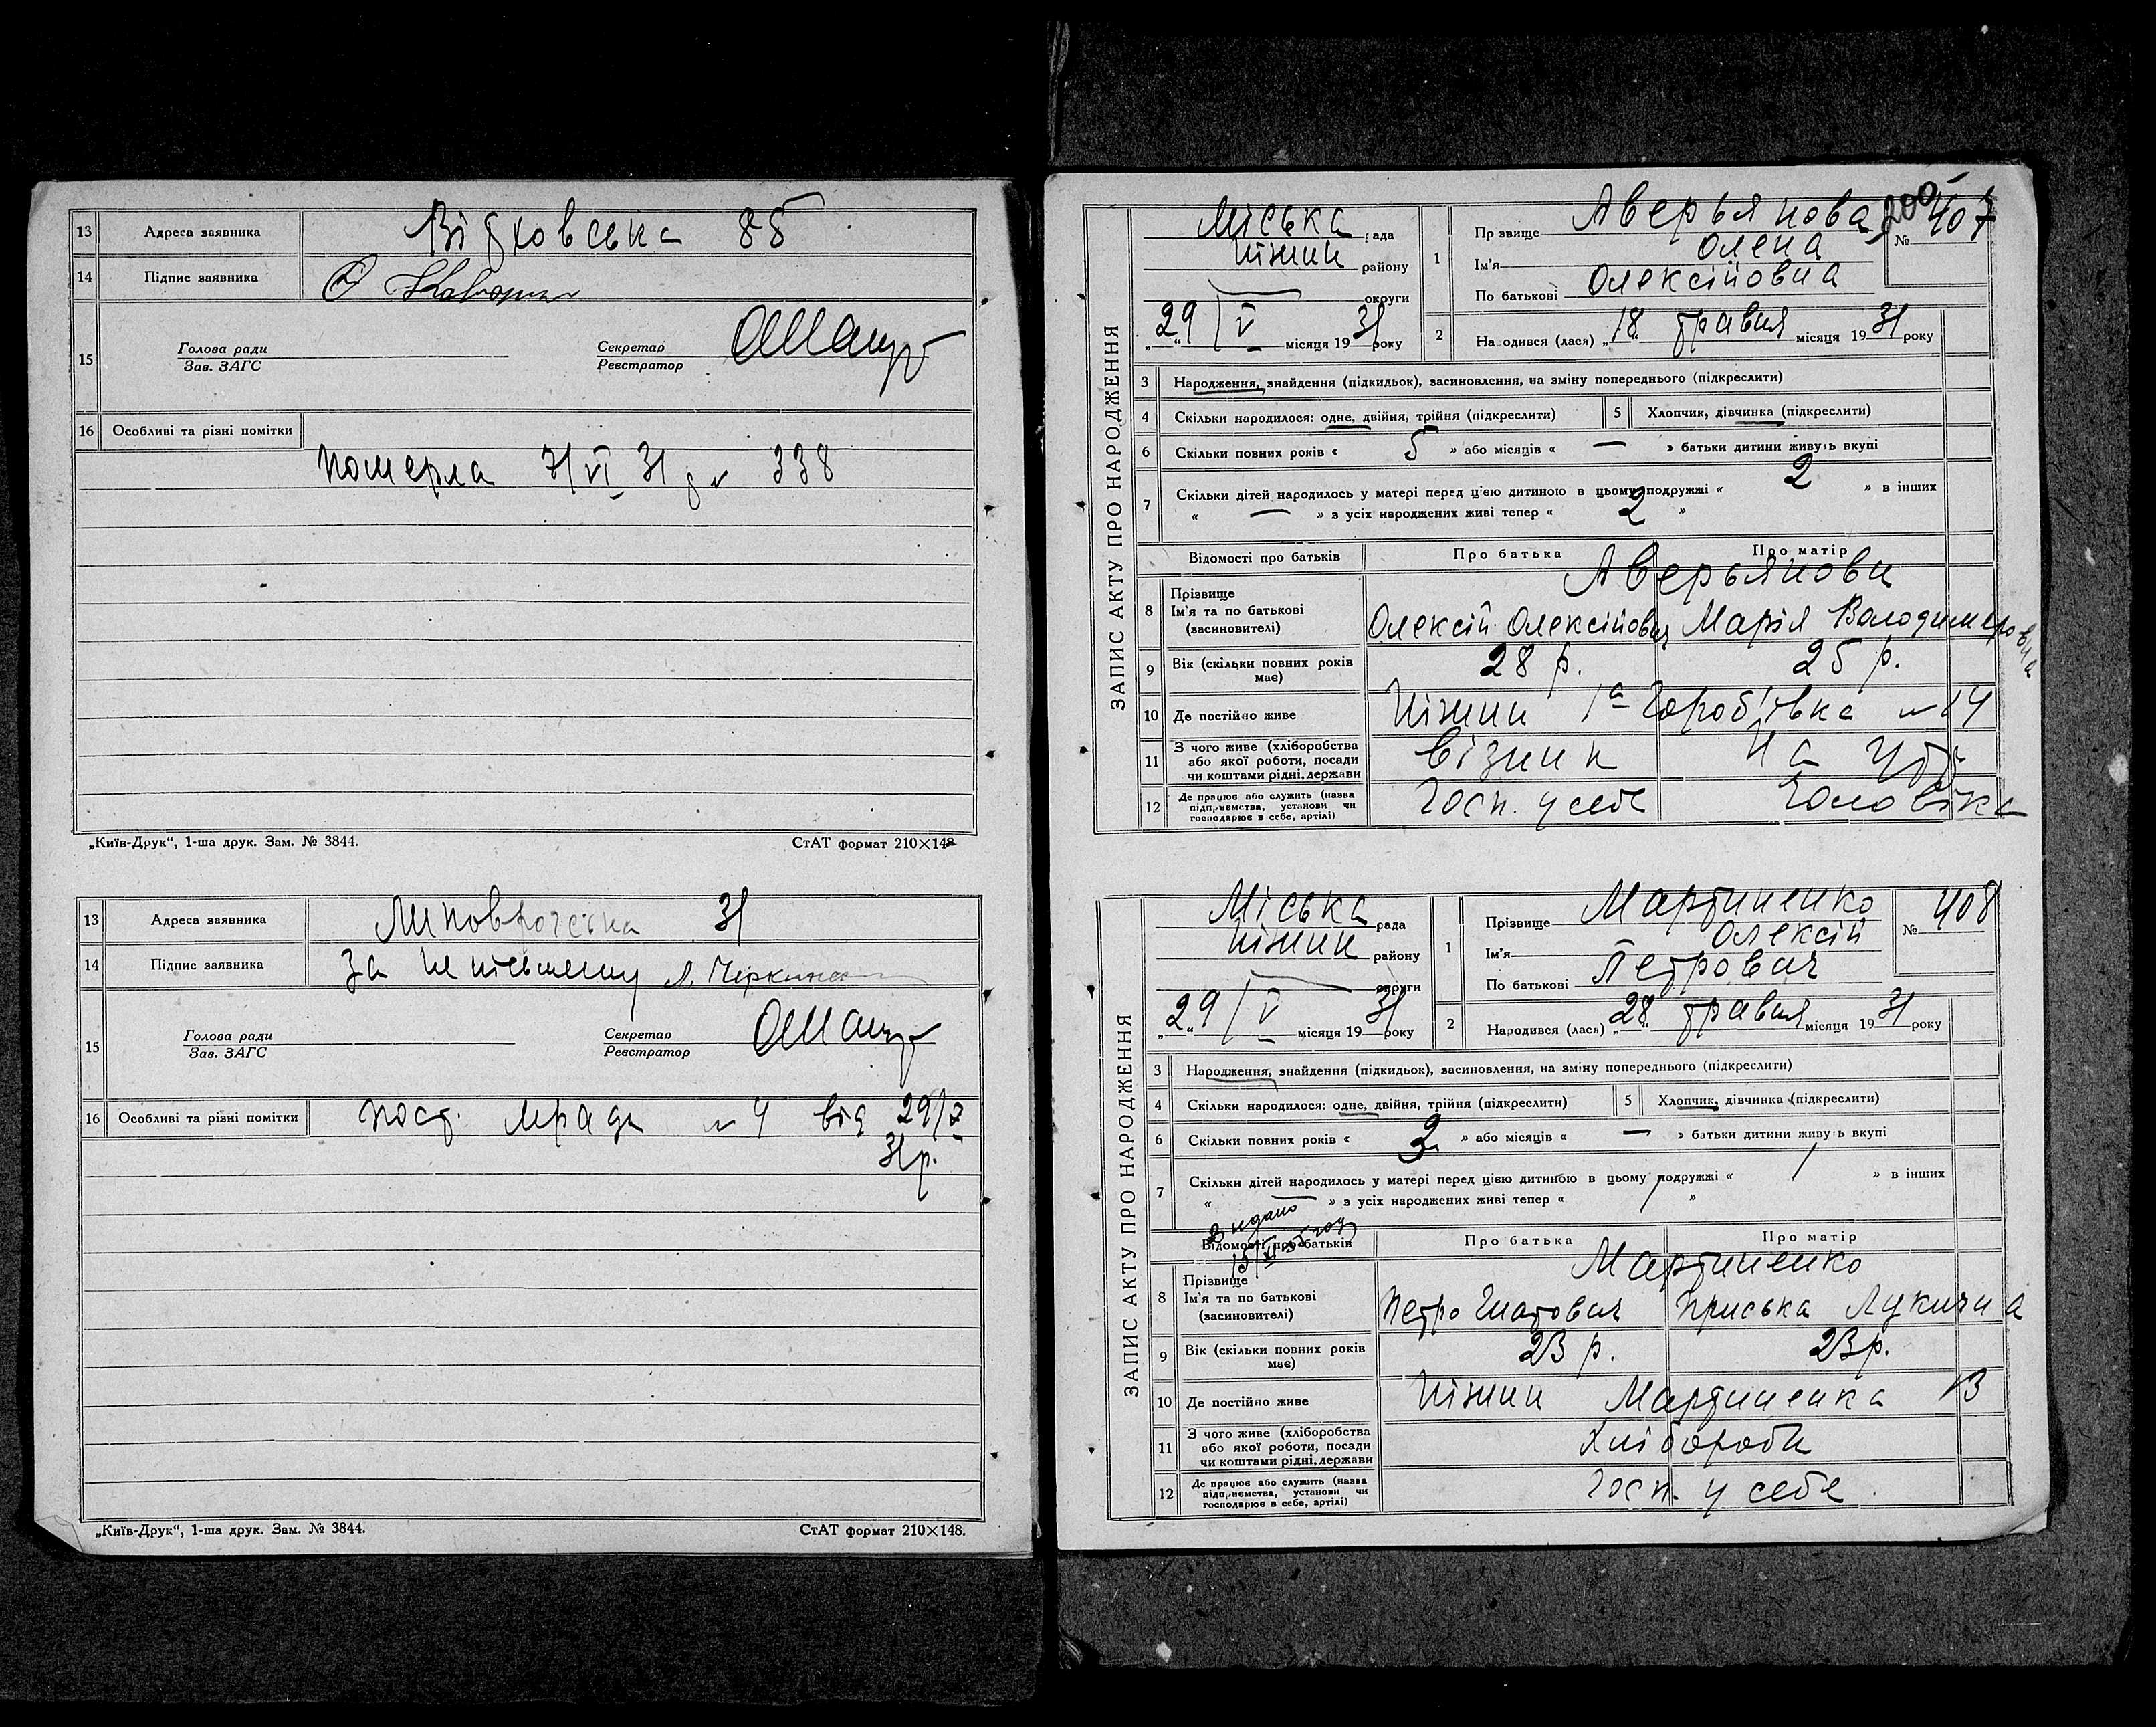 13 Адреса заявника Відховська 85
14 Підпис заявника
15 Голова ради Зав. ЗАГС Секретар Реєстратор
16 Особливі та різні помітки
померла 7/VI 31 р № 338
„Київ-Друк“, 1-ша друк. Зам. № 3844. СтАТ формат 210×148
13 Адреса заявника 31
14 Підпис заявника За неписьменну
15 Голова ради Зав. ЗАГС Секретар Реєстратор
16 Особливі та різні помітки пост. м № 4 від 29/
31 р.
„Київ-Друк“, 1-ша друк. Зам. № 3844. СтАТ формат 210×148.
ЗАПИС АКТУ ПРО НАРОДЖЕННЯ
Міська рада
Ніжин району
округи
„29“ V місяця 1931 року
200
№ 407
1 Прізвище Аверьянова
Ім'я Олена
По батькові Олексійовна
2 Народився (лася) „18“ травня місяця 1931 року
3 Народження, знайдення (підкидьок), засиновлення, на зміну попереднього (підкреслити)
4 Скільки народилося: одне, двійня, трійня (підкреслити) 5 Хлопчик, дівчинка (підкреслити)
6 Скільки повних років « 5 » або місяців « — » батьки дитини живуть вкупі
7 Скільки дітей народилось у матері перед цією дитиною в цьому подружжі « 2 » в інших
« — » з усіх народжених живі тепер « 2 »
Відомості про батьків Про батька Про матір
8 Прізвище Ім'я та по батькові (засиновителі) Аверьянови
Олексій Олексійович Марія Володимеровна
9 Вік (скільки повних років має) 28 р. 25 р.
10 Де постійно живе Ніжин 1а Горобʼївка № 14
11 З чого живе (хліборобства або якої роботи, посади чи коштами рідні, держави візник На утр
12 Де працює або служить (назва підприємства, установи чи господарює в себе, артілі) Госп. у себе чоловіка
ЗАПИС АКТУ ПРО НАРОДЖЕННЯ
Міська рада
Ніжин району
округи
„29“ V місяця 1931 року
№ 408
1 Прізвище Мартиненко
Ім'я Олексій
По батькові Петрович
2 Народився (лася) „28“ травня місяця 1931 року
3 Народження, знайдення (підкидьок), засиновлення, на зміну попереднього (підкреслити)
4 Скільки народилося: одне, двійня, трійня (підкреслити) 5 Хлопчик, дівчинка (підкреслити)
6 Скільки повних років « » або місяців « — » батьки дитини живуть вкупі
7 Скільки дітей народилось у матері перед цією дитиною в цьому подружжі « 1 » в інших
« — » з усіх народжених живі тепер « 1 »
Видано
Відомості про батьків Про батька Про матір
8 Прізвище Ім'я та по батькові (засиновителі) Мартиненко
Петро Гнатович Приська Лукична
9 Вік (скільки повних років має) 23 р. 23 р.
10 Де постійно живе Ніжин Мартиненка 13
11 З чого живе (хліборобства або якої роботи, посади чи коштами рідні, держави Хлібороби
12 Де працює або служить (назва підприємства, установи чи господарює в себе, артілі) Госп. у себе